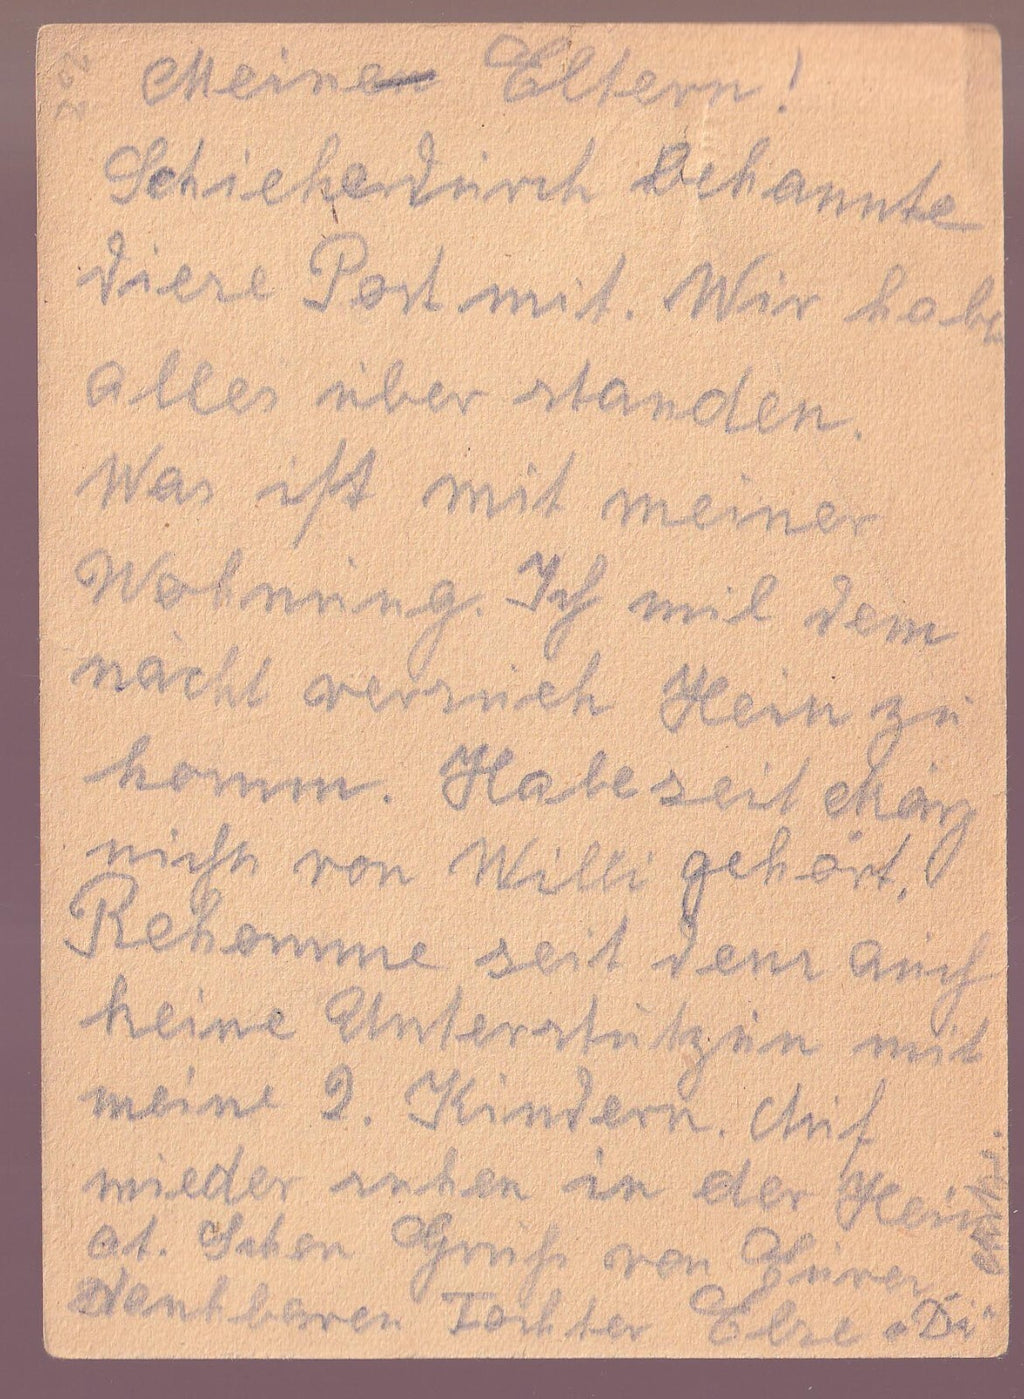 Meine Eltern!
Schicke durch Bekannte
diese Post mit. Wir habe
alles über standen.
Was ist mit meiner
Wohnung. Ich will dem
nächt versuch Heim zu
komm. Habe seit März
nichts von Willi gehört.
Bekomme seit dem auch
keine Unterstützun mit
meine 2. Kindern. Auf
wieder sehen in der Heim
at. Schön Gruß von Eurer
Dankbaren Tochter Else